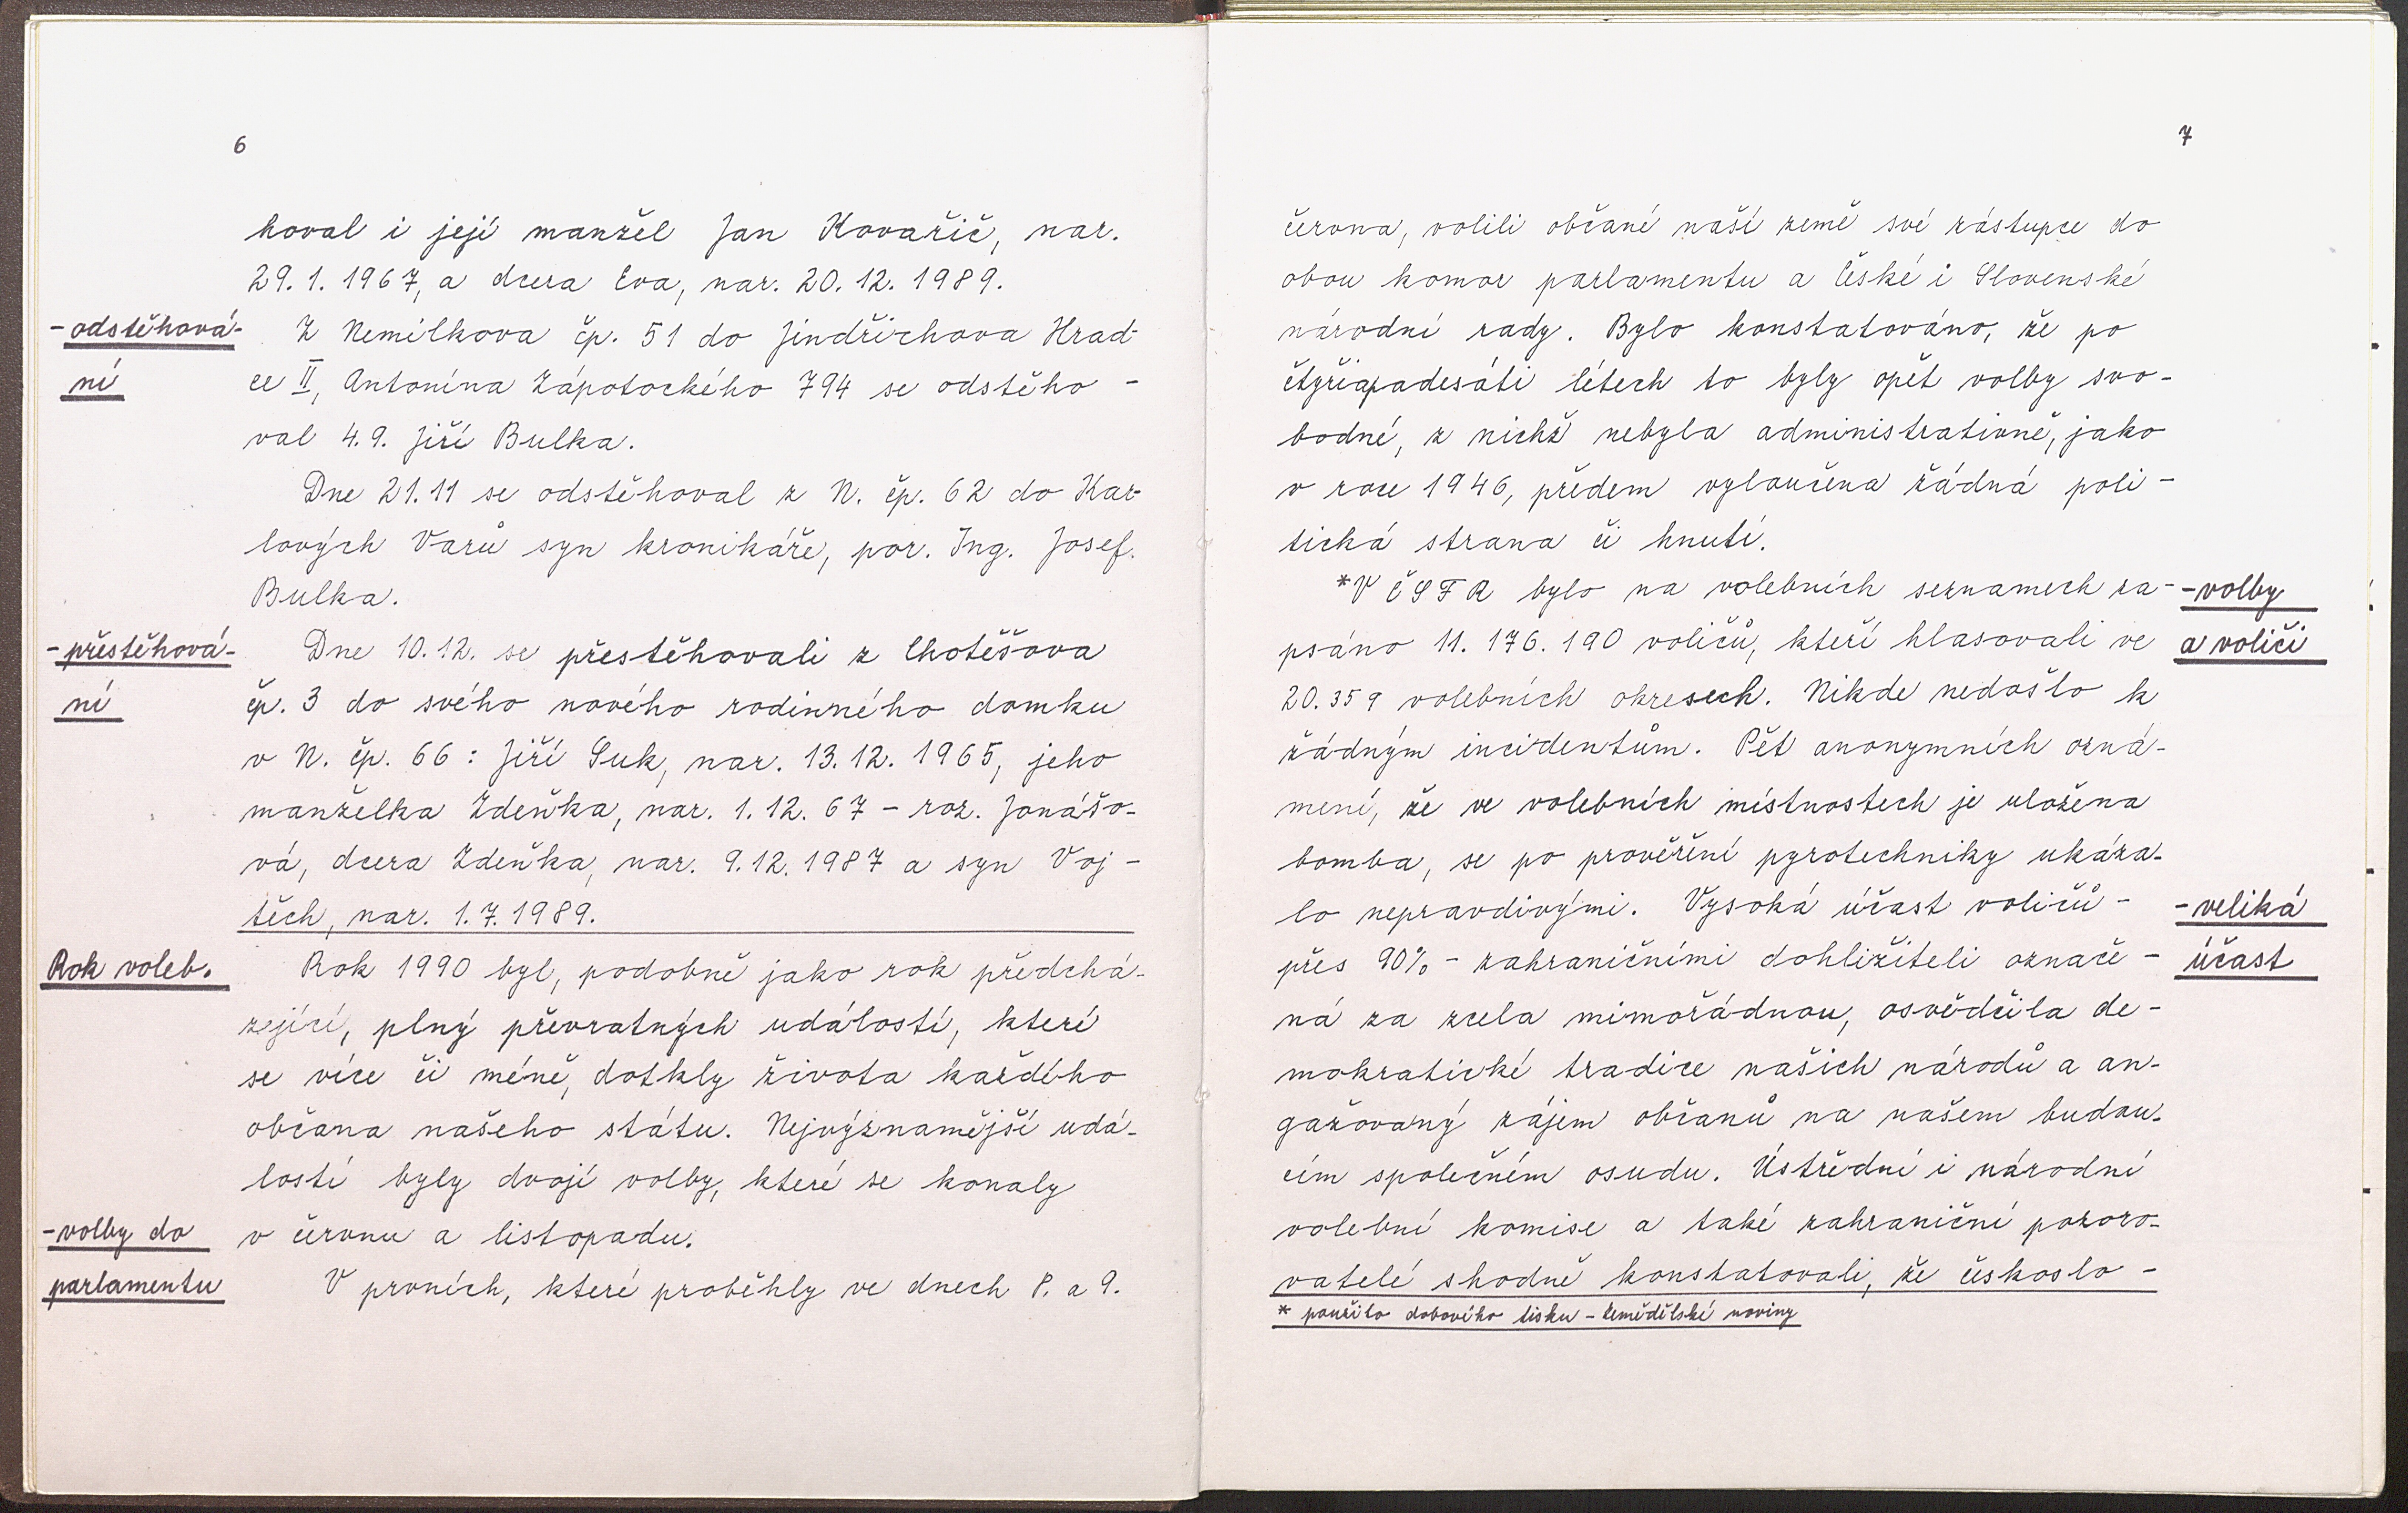 6
hoval i její manžel Jan Kovařič, nar.
29. 1. 1967, a dcera Eva, nar. 20. 12. 1989.
-odstěhová- Z Nemilkova čp. 51 do Jindřichova Hrad-
ní ce II, Antonína Zápotockého 794 se odstěho-
val 4. 9. Jiří Bulka.
Dne 21. 11 se odstěhoval z N. čp. 62 do Kar-
lových Varů syn kronikáře, por. Ing. Josef.
Bulka.
-přestěhová- Dne 10. 12. se přestěhovali z Chotěšova
ní čp. 3 do svého nového rodinného domku
v N. čp. 66 : Jiří Suk, nar. 13. 12. 1965, jeho
manželka Zdeňka, nar. 1. 12. 67 - roz. Jonášo-
vá, dcera Zdeňka, nar. 9. 12. 1987 a syn Voj-
těch, nar. 1. 7. 1989.
Rok voleb. Rok 1990 byl, podobně jako rok předchá-
zející, plný převratných událostí, které
se více či méně, dotkly života každého
občana našeho státu. Nejvýznamější udá-
lostí byly dvojí volby, které se konaly
-volby do v červnu a listopadu.
parlamentu V prvních, které proběhly ve dnech 8. a 9.
7
června, volili občané naší země své zástupce do
obou komor parlamentu a České i Slovenské
národní rady. Bylo konstatováno, že po
čtyřiapadesáti létech to byly opět volby svo-
bodné, z nichž nebyla administrativně, jako
v roce 1946, předem vyloučena žádná poli-
tická strana či hnutí.
*V ČSFR bylo na volebních seznamech za- -volby
psáno 11. 176. 190 voličů, kteří hlasovali ve a voliči
20. 359 volebních okresech. Nikde nedošlo k
žádným incidentům. Pět anonymních ozná-
mení, že ve volebních místnostech je uložena
bomba, se po prověření pyrotechniky ukáza-
lo nepravdivými. Vysoká účast voličů - -veliká
přes 90% - zahraničními dohližiteli označe- účast
ná za zcela mimořádnou, osvědčila de-
mokratické tradice našich národů a an-
gažovaný zájem občanů na našem budou-
cím společném osudu. Ústřední i národní
volební komise a také zahraniční pozoro-
vatelé shodně konstatovali, že českoslo-
* použito dobového tisku - Zemědělské noviny